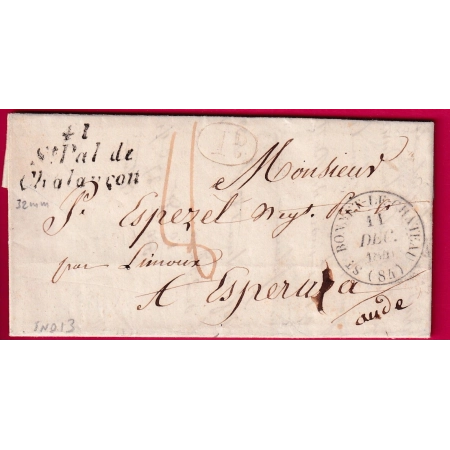 41
St Pal de
Chalançon
32mm
Monsieur
Jh Espezel Negt.
par Limoux
A Esperaza
aude
ST BONNET-LE-CHATEAU
11
DEC.
(84)
IND.13